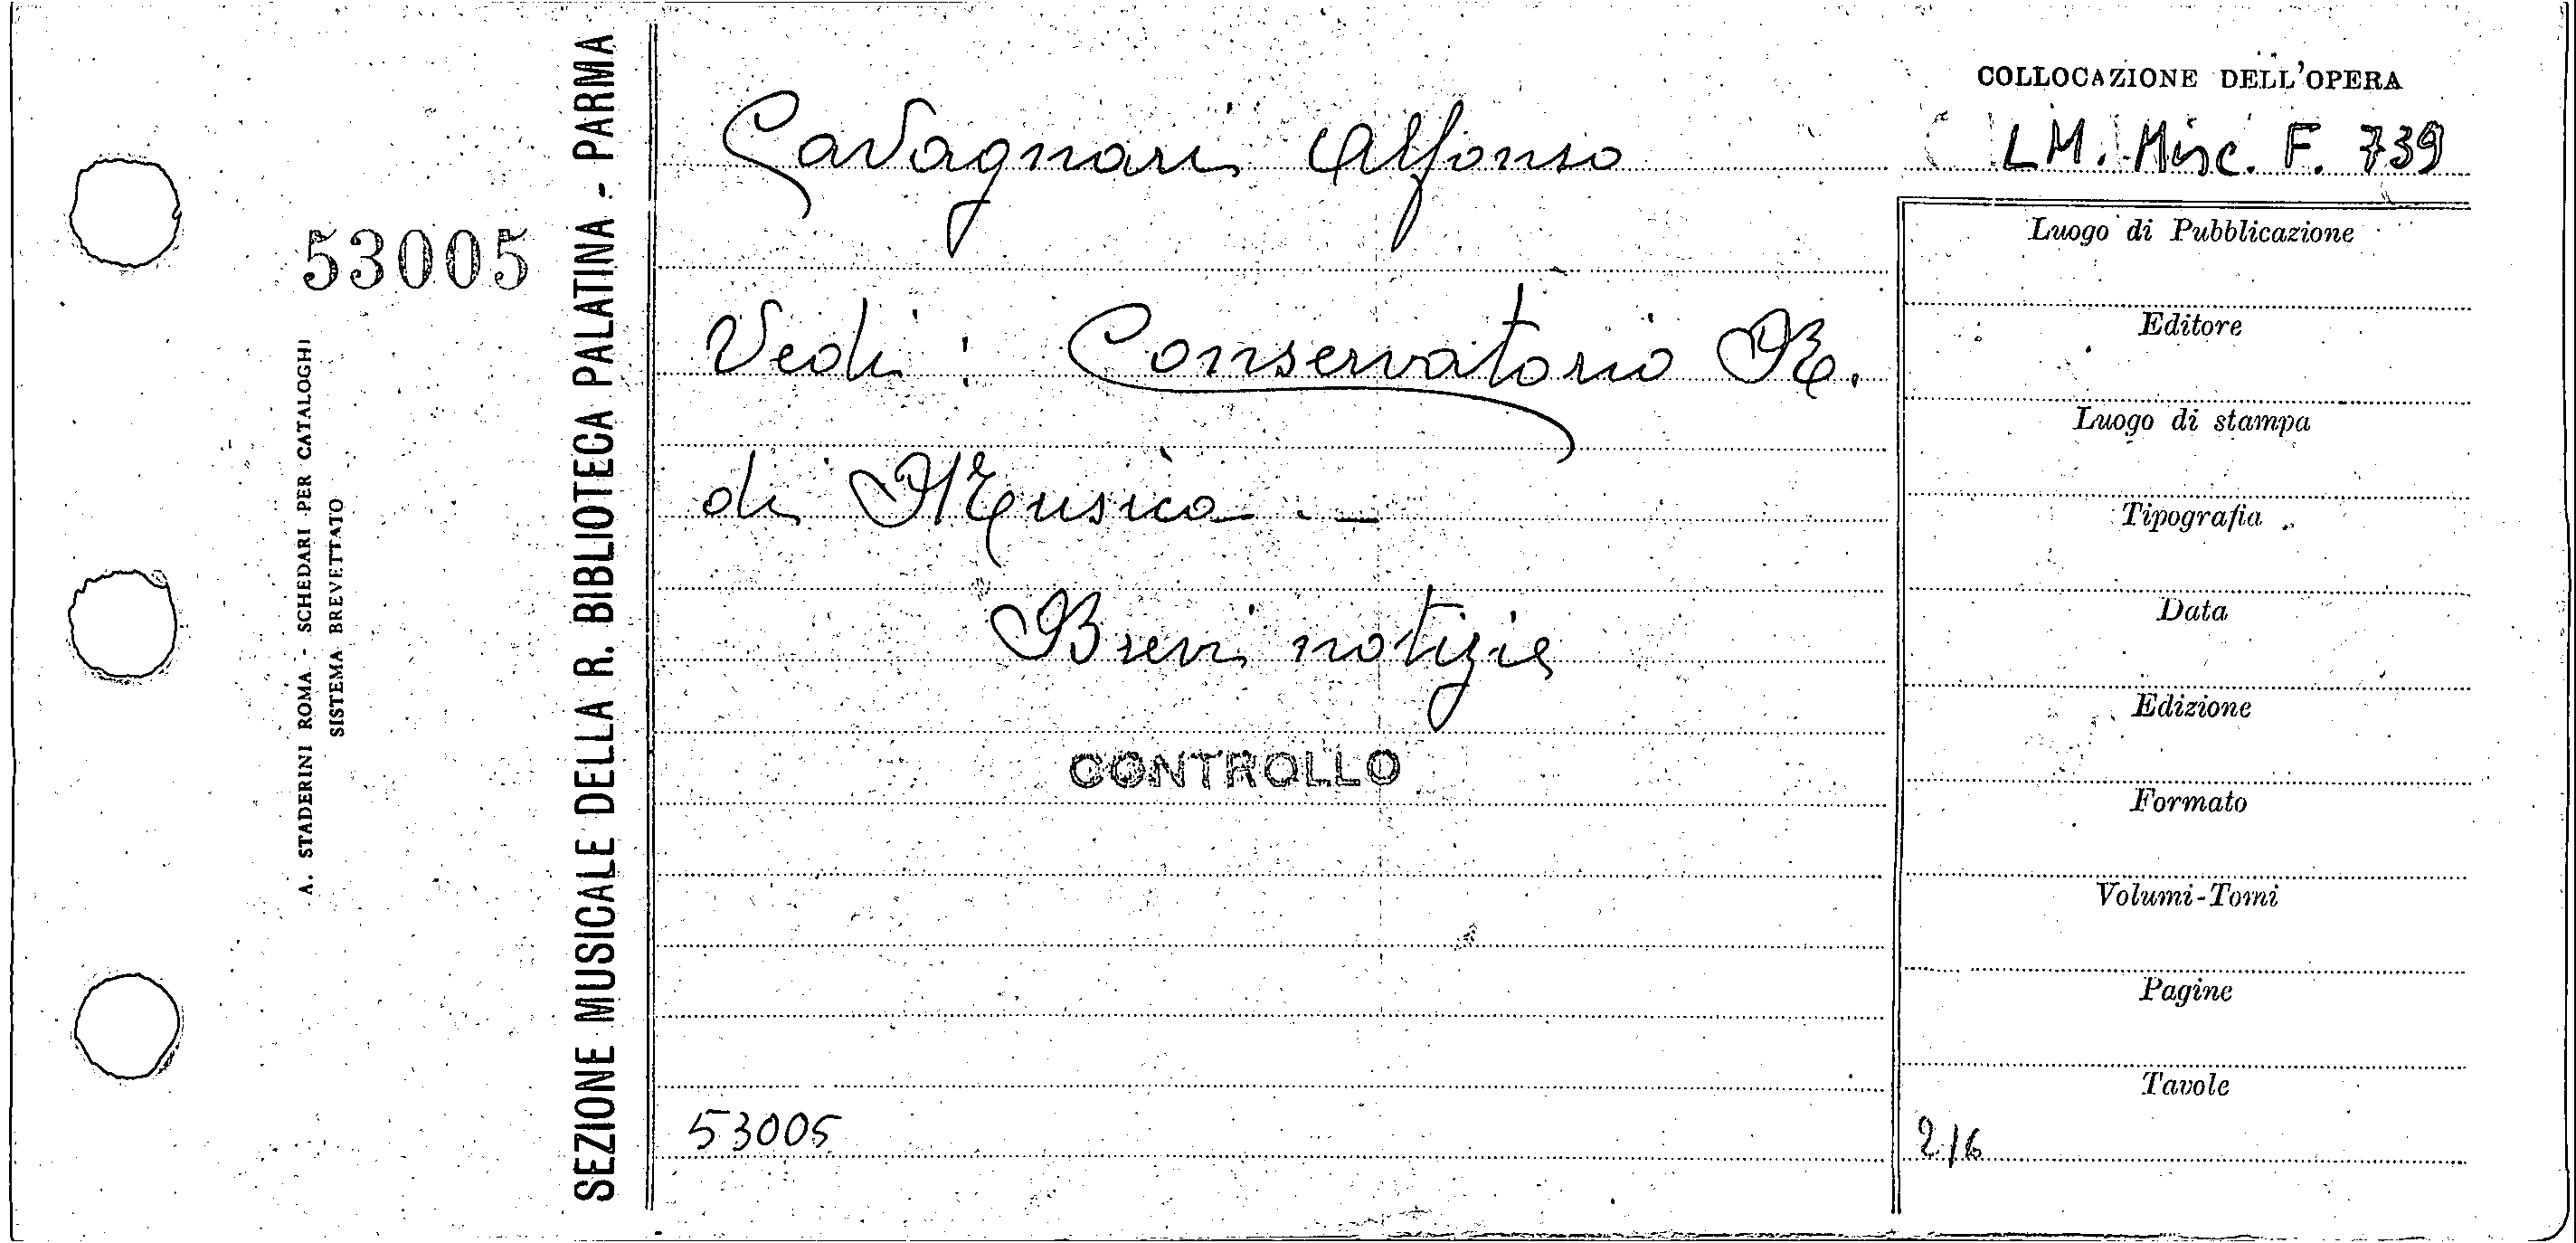 53005
A. STADERINI ROMA - SCHEDARI PER CATALOGHI
SISTEMA BREVETTATO
SEZIONE MUSICALE DELLA R. BIBLIOTECA PALATINA - PARMA
Cavagnari Alfonso
Vedi : Conservatorio R.
di Musica. —
Brevi notizie
CONTROLLO
53005
COLLOCAZIONE DELL'OPERA
LM. Misc. F. 739
Luogo di Pubblicazione
Editore
Luogo di stampa
Tipografia
Data
Edizione
Formato
Volumi-Tomi
Pagine
Tavole
2/6